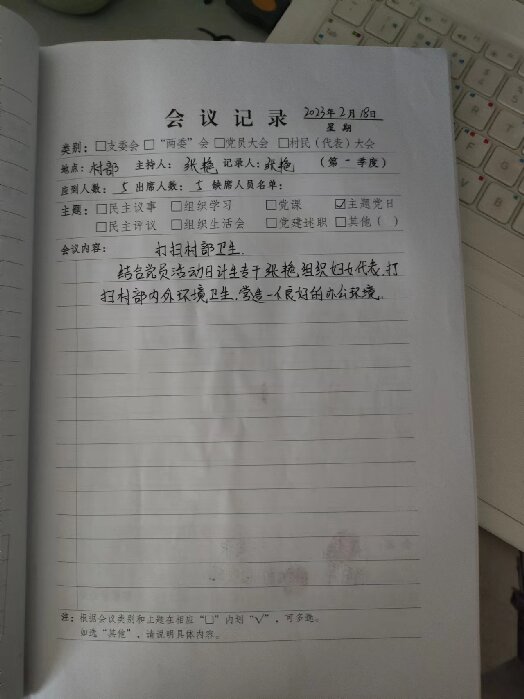 会议记录 2023年2月18日
星期
类别：□支委会□“两委”会□党员大会□村民（代表）大会
地点：村部 主持人：张艳 记录人：张艳 （第一季度）
应到人数：5 出席人数：5 缺席人员名单：
主题：□民主议事 □组织学习 □党课 ☑主题党日
□民主评议 □组织生活会 □党建述职 □其他（ ）
会议内容： 打扫村部卫生.
结合党员活动日计生专干张艳,组织妇女代表,打
扫村部内外环境卫生,营造一个良好的办公环境.
注：根据会议类别和主题在相应“□”内划“√”，可多选。
如选“其他”，请说明具体内容。